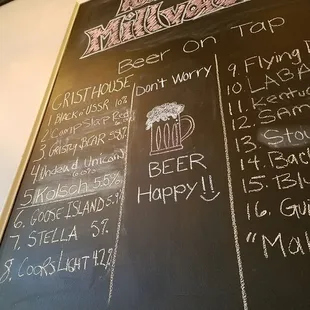 Millva
Beer On Tap
GRISTHOUSE
1. BLACK USSR 10%
2. Camp Slap Red
3. GRISTY BEAR 5.8%
4. Undead Unicorn
5. Kolsch 5.5%
6. GOOSE ISLAND 5.9%
7. STELLA 5%
8. COORS LIGHT 4.2%
Don't Worry
BEER
Happy!!
9. Flying
10. LABA
11. Kentuc
12. SAM
13. Stou
14. Back
15. Blu
16. Gui
"Mal